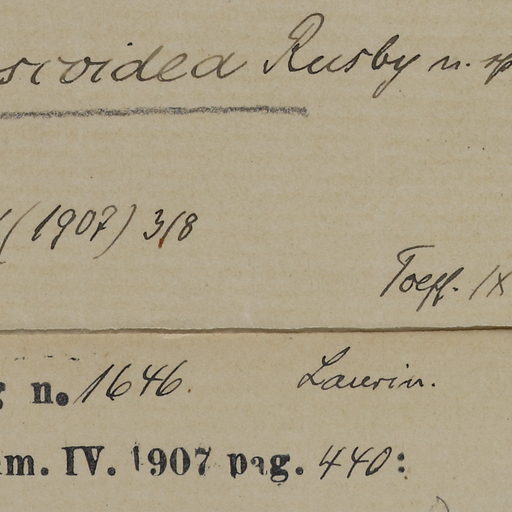 scoidea Rusby n. sp
(1907) 318
Toepf. IX
g n. 1646. Laurin.
m. IV. 1907 pag. 440: